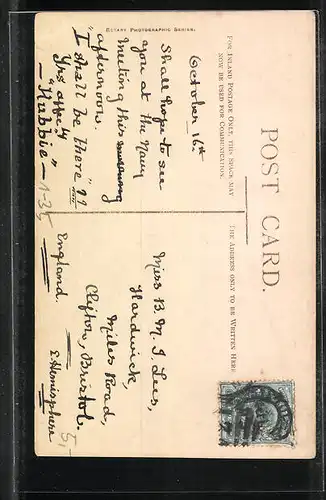 ROTARY PHOTOGRAPHIC SERIES.
POST CARD.
FOR INLAND POSTAGE ONLY, THIS SPACE MAY
NOW BE USED FOR COMMUNICATION.
THE ADDRESS ONLY TO BE WRITTEN HERE
October 16th
Shall hope to see
you at the Navy
meeting this
afternoon.
"I shall be there" !!
Yrs affectly
- "Hubbie" -
1-35
Miss B. M. I. Lees,
Hardwick
Miles Road,
Clifton, Bristol.
England.
E. Hemisphere
5,-